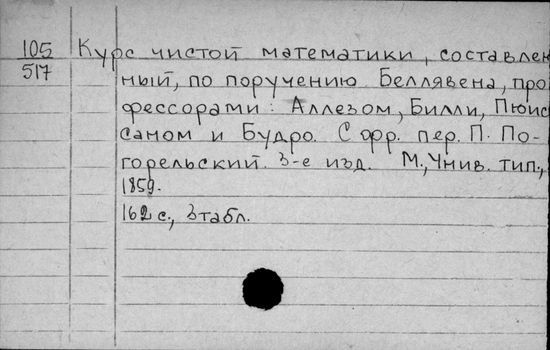 105 Курс чистой математики, составлен
517 ный, по поручению Беллявена, про
фессорами: Аллезом, Билли, Пюис
саном и Будро. С фр. пер. П. По-
горельский. 3-е изд. М., Унив. тип.,
1859.
162 с., 3 табл.